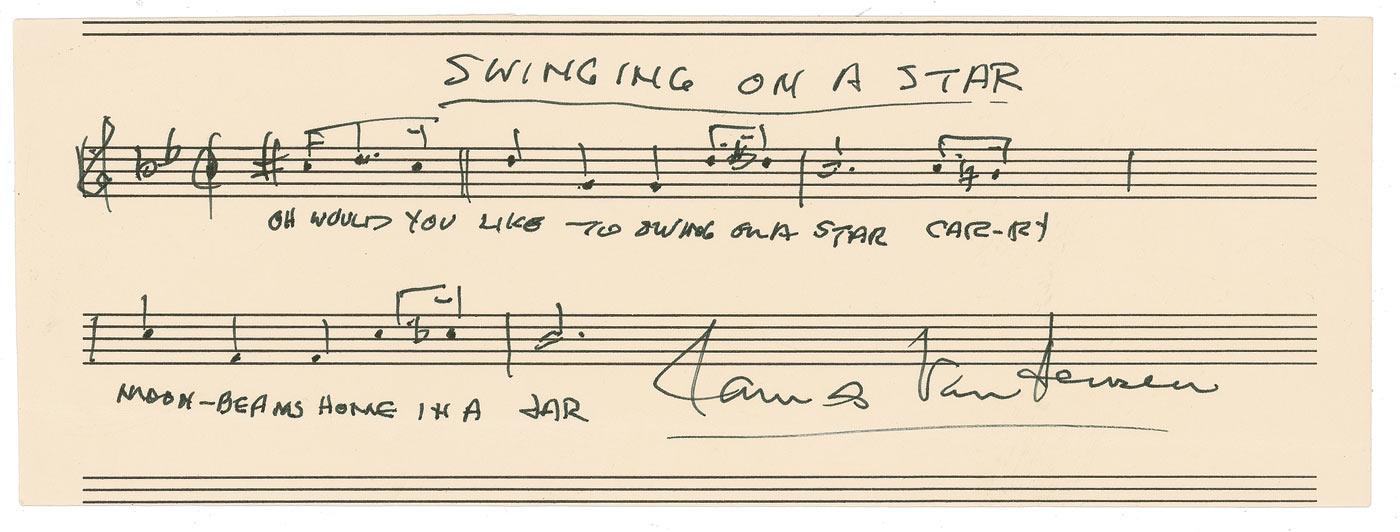 SWINGING ON A STAR
OH WOULD YOU LIKE TO SWING ON A STAR CAR-RY
MOON-BEAMS HOME IN A JAR
James Van Heusen